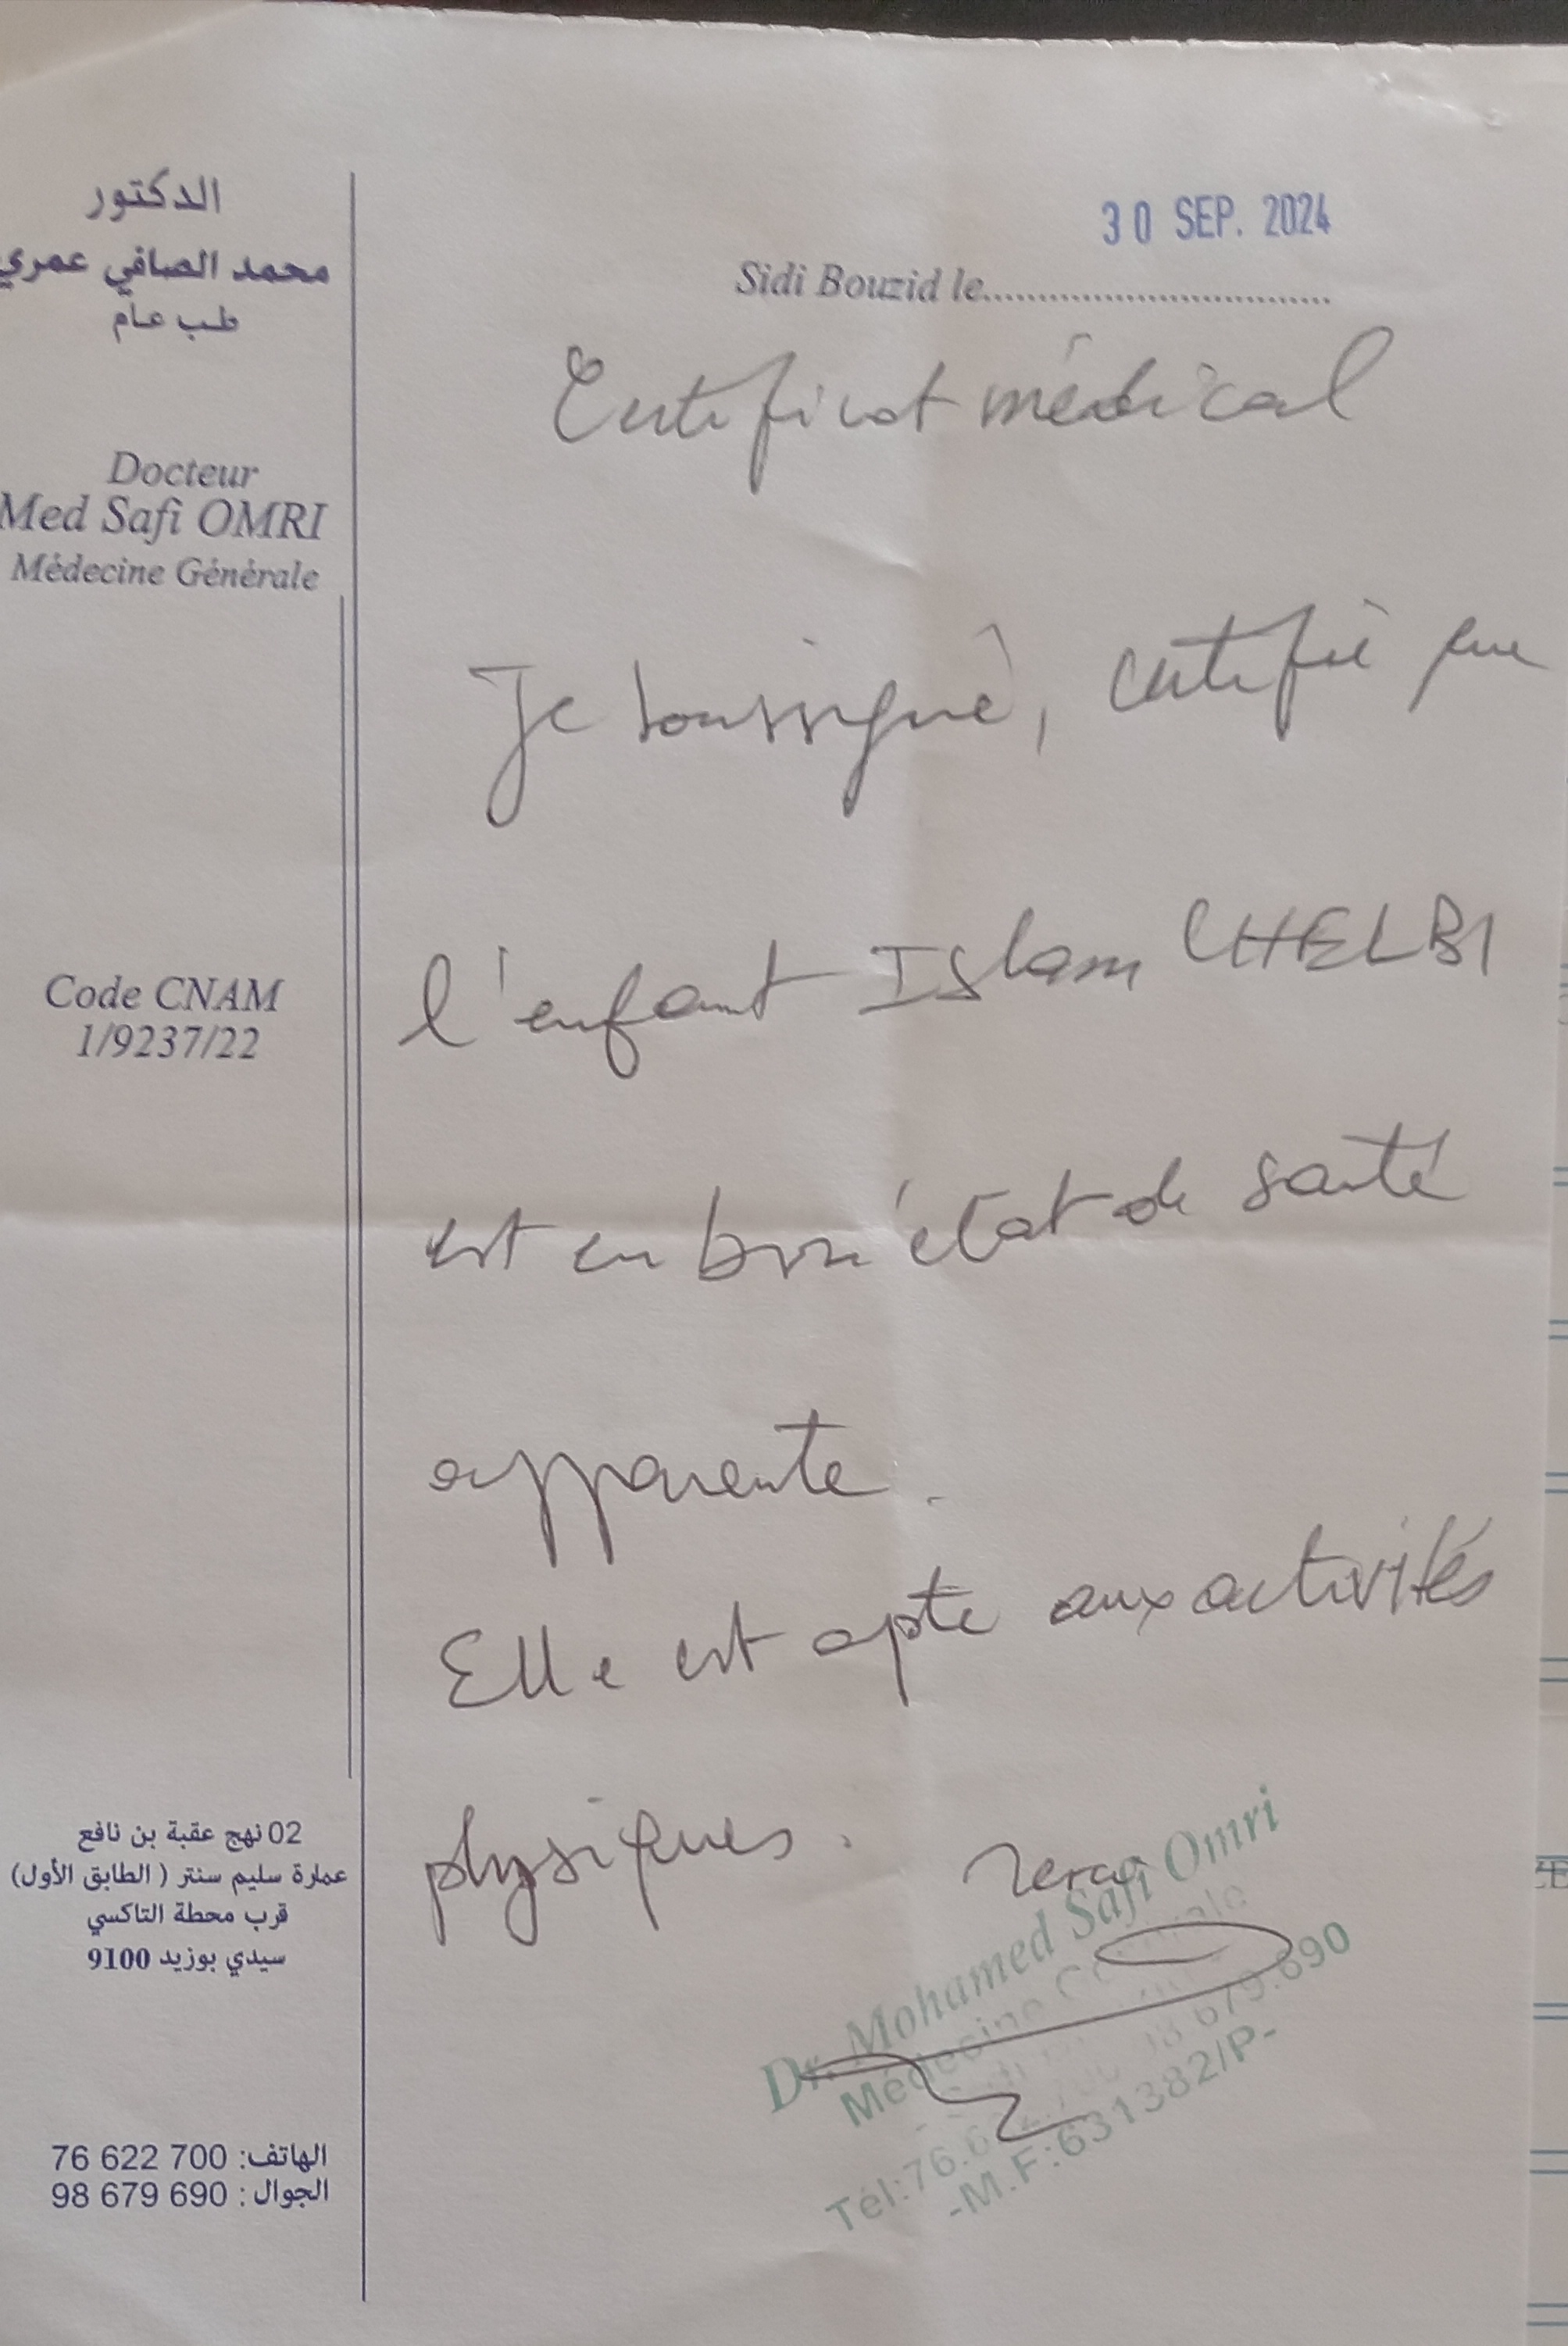 الدكتور
محمد الصافي عمري
طب عام
Docteur
Med Safi OMRI
Médecine Générale
Code CNAM
1/9237/22
02 نهج عقبة بن نافع
عمارة سليم سنتر ( الطابق الأول)
قرب محطة التاكسي
سيدي بوزيد 9100
الهاتف: 76 622 700
الجوال : 98 679 690
30 SEP. 2024
Sidi Bouzid le
Certificat médical
Je soussigné, certifie que
l'enfant Islam CHELBI
est en bon état de santé
apparente.
Elle est apte aux activités
physiques.
Dr. Mohamed Safi Omri
Médecine
Tél:76.622.700 98 679.690
-M.F:631382/P-